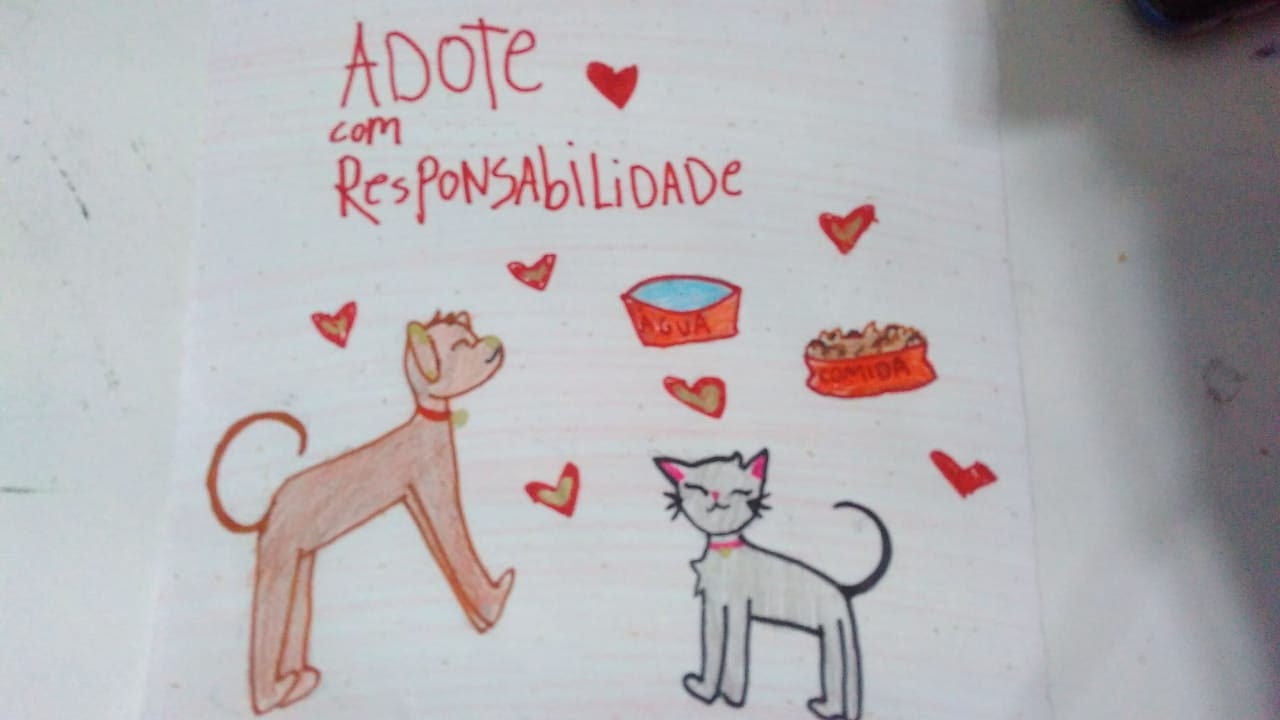 ADOTE
com
ResPONSAbiLiDADe
ÁGUA
COMIDA